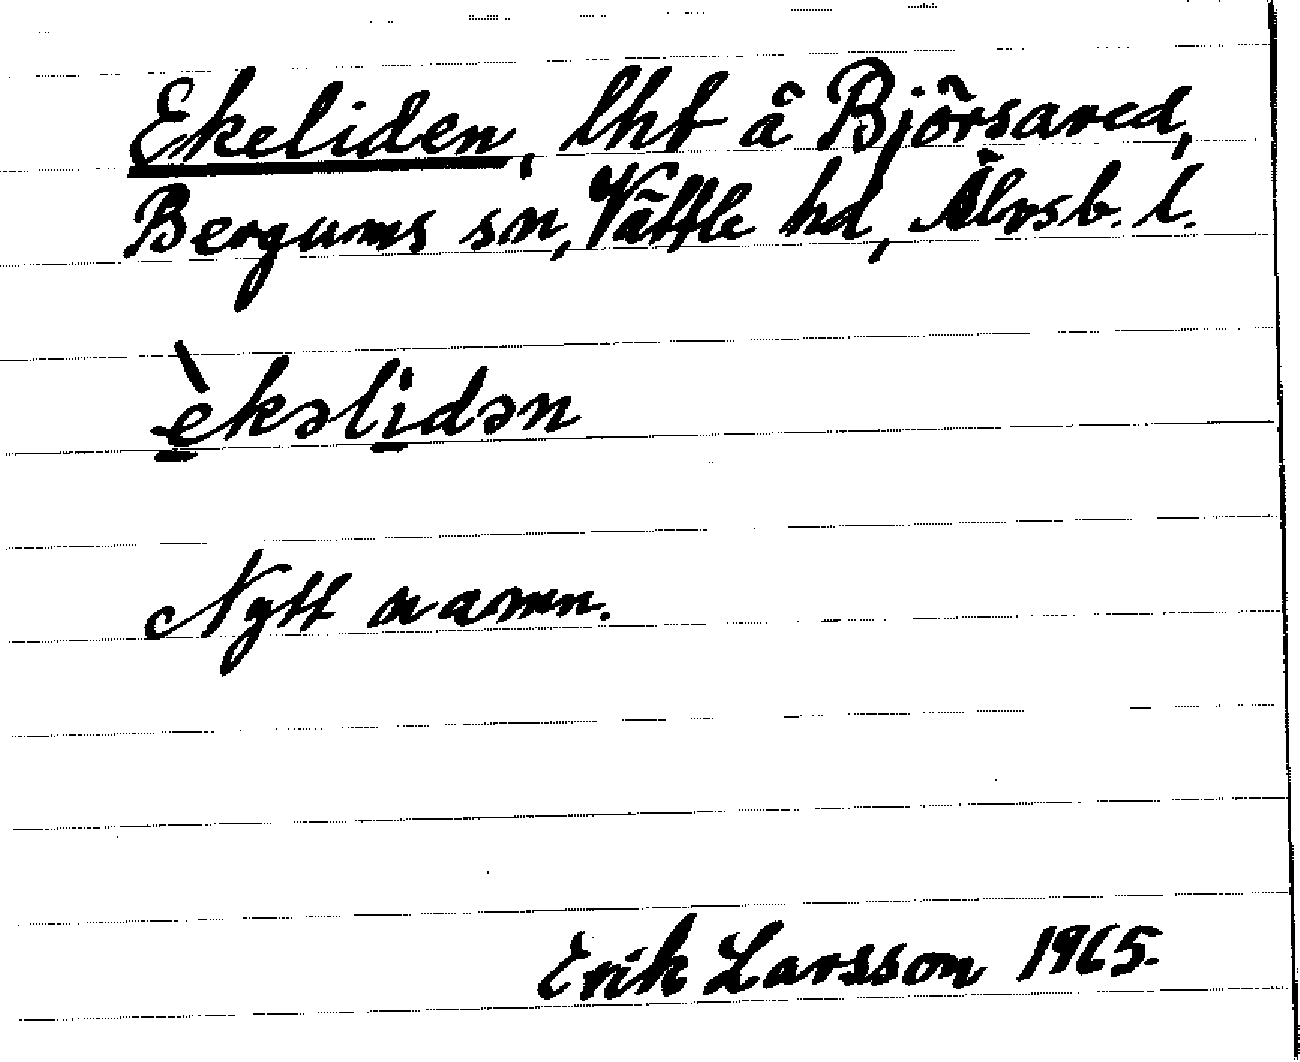 Ekeliden, lht å Björsared,
Bergums sn, Vättle hd, Älvsb. l.
èkəlidən
Nytt namn.
Erik Larsson 1965.